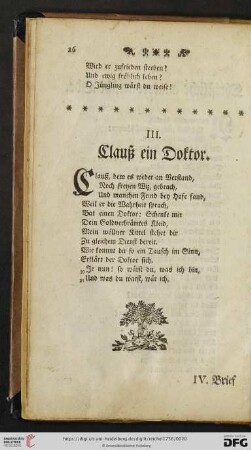 26
Wird er zufrieden sterben?
Und ewig fröhlich leben?
O Jüngling wärst du weise!
III.
Clauß ein Doktor.
Clauß, dem es weder an Verstand,
Noch freyen Wiz, gebrach,
Und manchen Feind bey Hofe fand,
Weil er die Wahrheit sprach,
Bat einen Doktor: Schenke mir
Dein Goldverbrämtes Kleid,
Mein wöllner Kittel stehet dir
Zu gleichem Dienst bereit.
Wie kommt dir so ein Tausch im Sinn,
Erklärt der Doktor sich.
„Je nun! so wärst du, was ich bin,
„Und was du warst, wär ich.
IV. Brief